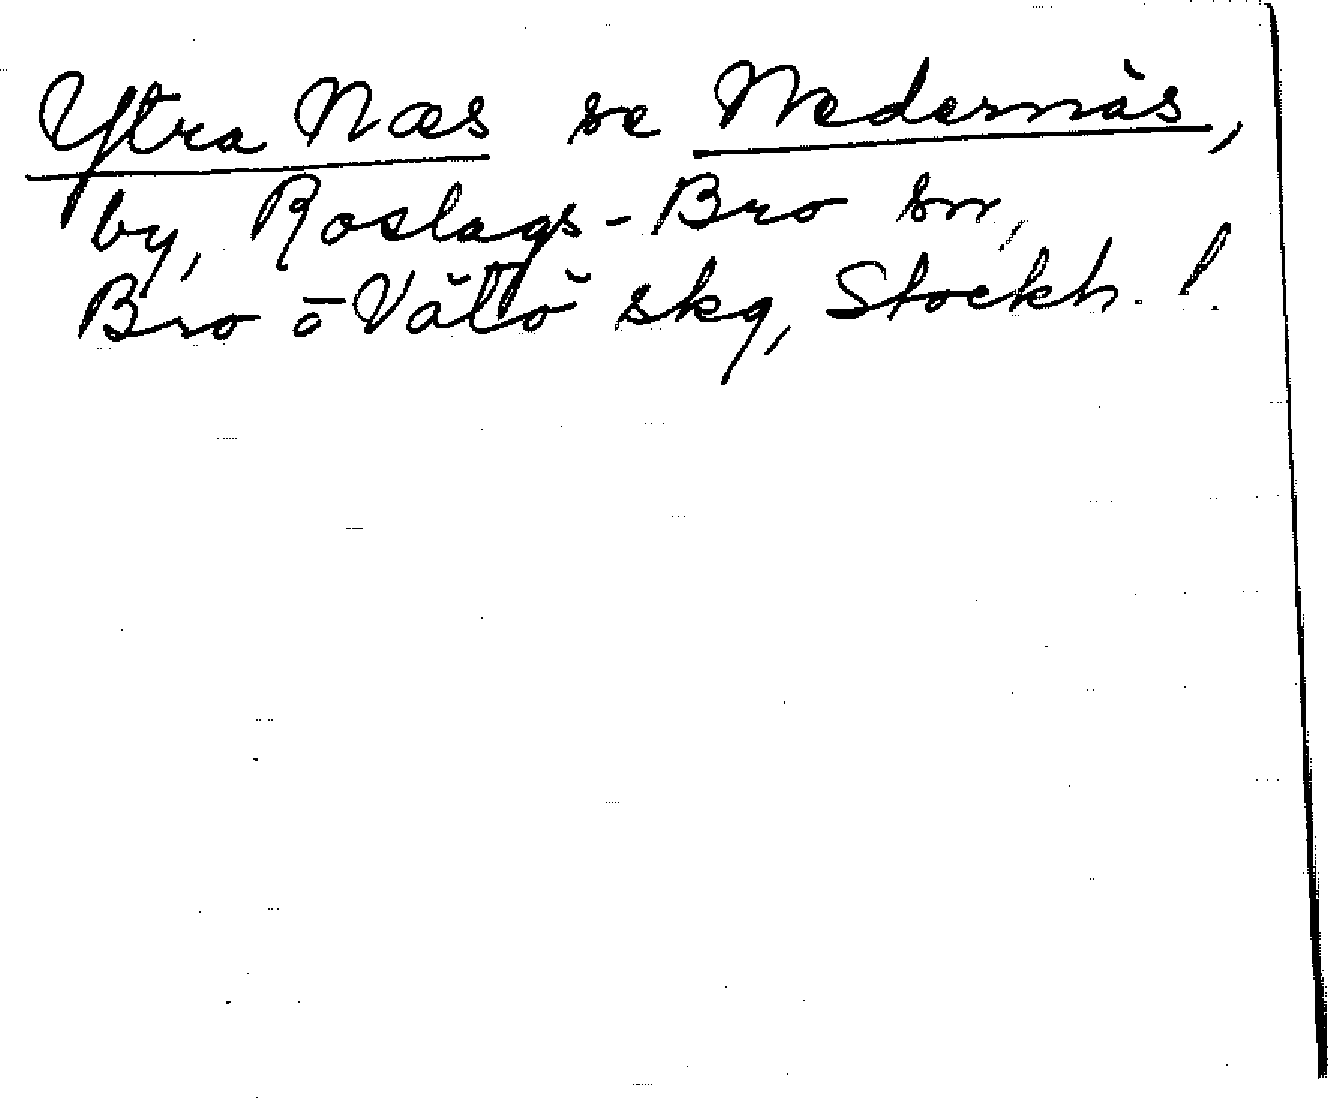 Yttra Næs se Nedernäs,
by, Roslags-Bro sn,
Bro o Vätö skg, Stockh. l.